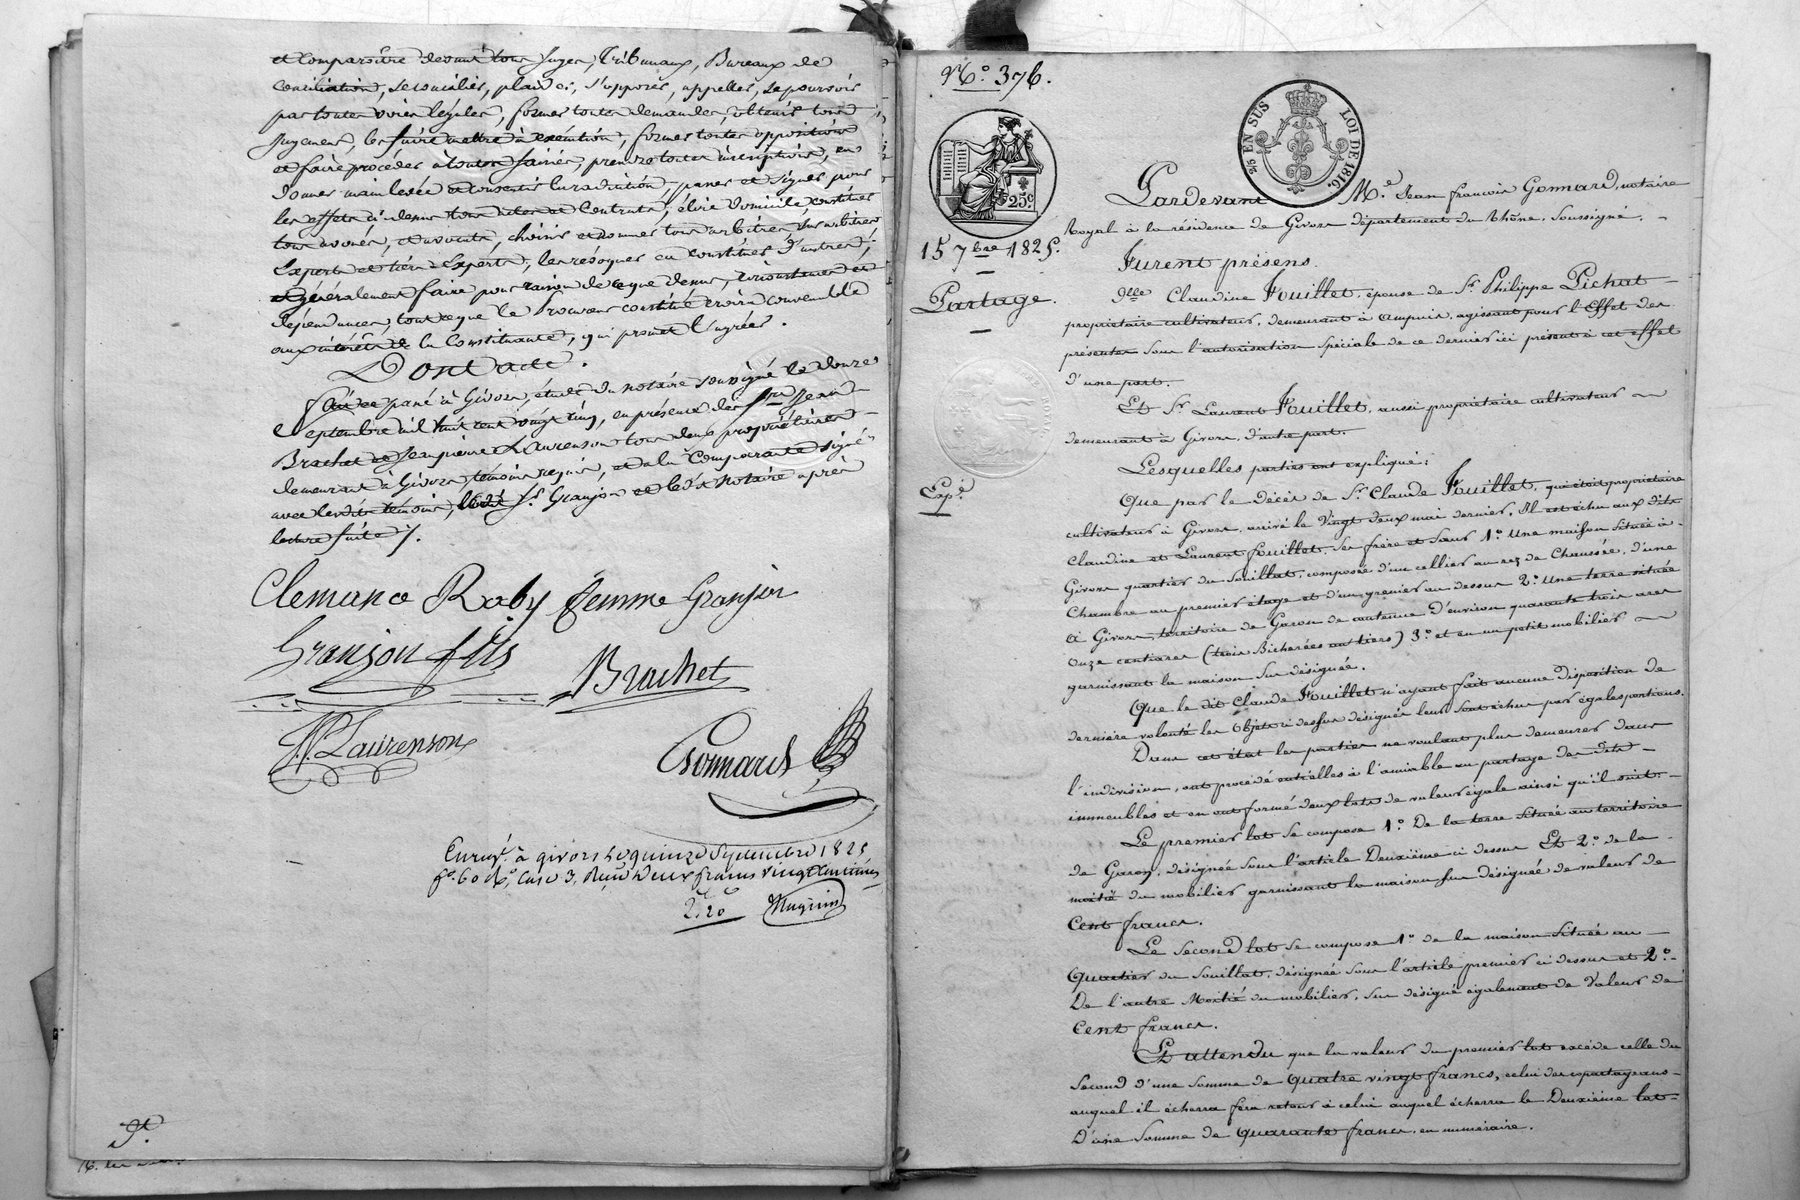 et comparoître devant tous Juges, Tribunaux, Bureaux de
conciliation, se concilier, plaider, s'opposer, appeller, se pourvoir
par toutes voies légales, former toutes demandes, obtenir tous
jugemens, les faire mettre à exécution, former toutes oppositions
et faire procéder à toutes saisies, prendre toutes inscriptions, en
donner main levée et consentir la radiation, passer et signer pour
les effets ci dessus tous actes et Contrats, élire domicile, constituer
tous avoués, et avocats, choisir et nommer tous arbitres, sur arbitres
Experts et tiers-Experts, les révoquer en constituer d'autres;
et généralement faire pour raison de ce que dessus, circonstances et
dépendances, tout ce que le Procureur constitué croira convenable
aux intérêts de la Constituante, qui promet l'agréer.
Dont acte.
Fait et passé à Givors, étude du notaire soussigné le douze
Septembre mil huit cent vingt cinq, en présence des Srs Jean
Brachet et Jean pierre Laurenson tous deux propriétaires
demeurant à Givors, témoins requis, et a la Comparante signé
avec lesdits témoins, ledit Sr Granjon et led. Notaire après
lecture faite ./.
Clemance Roby femme Granjon
Granjon fils
Brachet
JP Laurenson
Gonnard
Enregt. à givors le quinze Septembre 1825
fo. 60 Ro, Case 3, Reçu Deux francs vingt Centimes
2f 20c
No. 376.
25 EN SUS
LOI DE 1816.
25c
15 7bre 1825.
Partage.
Expé.
Pardevant Me. Jean françois Gonnard, notaire
Royal à la résidence de Givors département du Rhône, Soussigné.
Furent présens
Dlle Claudine Fouillet, épouse de Sr. Philippe Pichat
propriétaire cultivateur, demeurant à Ampuis, agissant pour l'Effet des
présentes sous l'autorisation spéciale de ce dernier ici présent à cet effet
d'une part.
Et Sr. Laurent Fouillet, aussi propriétaire cultivateur
demeurant à Givors, d'autre part.
Lesquelles parties ont expliqué:
Que par le décès de Sr. Claude Fouillet, qui étoit propriétaire
cultivateur à Givors, arrivé le Vingt deux mai dernier, Il est échu aux dits
Claudine et Laurent fouillet, ses frère et Sœur 1o. Une maison située à
Givors quartier du Souillat, composée d'un cellier au rez de Chaussée, d'une
Chambre au premier étage et d'un grenier au dessus 2o. Une terre située
à Givors territoire de Garon de contenue d'environ quarante trois ares
onze centiares (trois Bicherées un tiers) 3o. et en un petit mobilier
garnissant la maison Sus désignée.
Que le dit Claude Fouillet n'ayant fait aucune disposition de
dernière volonté les Objets ci dessus désignés leur sont échus par égales portions.
Dans cet état les parties ne voulant plus demeurer dans
l'indivision, ont procédé entr'elles à l'amiable au partage des dits
immeubles et en ont formé deux lots de valeur égale ainsi qu'il suit.
Le premier lot se compose 1o. De la terre située au territoire
de Garon, désignée sous l'article Deuxième ci dessus Et 2o. de la
moitié du mobilier garnissant la maison sus désignée de valeur de
Cent francs.
Le second lot se compose 1o. de la maison située au
Quartier du Souillat, désignée sous l'article premier ci dessus et 2o.
De l'autre Moitié du mobilier, sus désigné également de Valeur de
Cent francs.
Et attendu que la valeur du premier lot excède celle du
Second d'une Somme de quatre vingt francs, celui des copartageans
auquel il écherra fera retour à celui auquel écherra le Deuxième lot
D'une Somme de quarante francs, en numéraire.